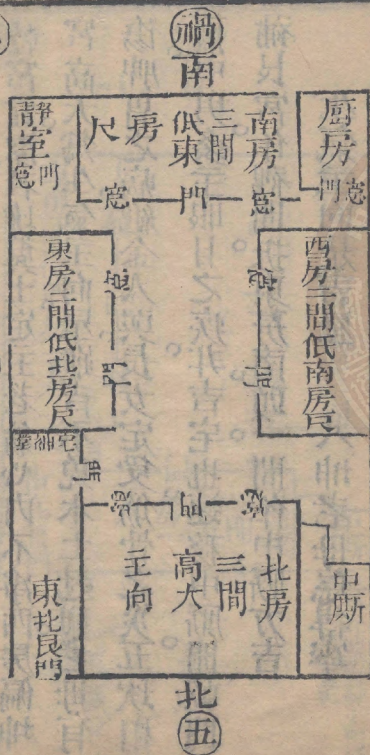 禍
南
厨房
門
窓
南房
三間
低東
房
尺
窓
門
窓
靜室
門
窓
西房二間低南房尺
窓
門
東房二間低北房尺
窓
門
宅神堂
門
中厠
北房
三間
高大
主向
窓
門
窓
東北艮門
北
五